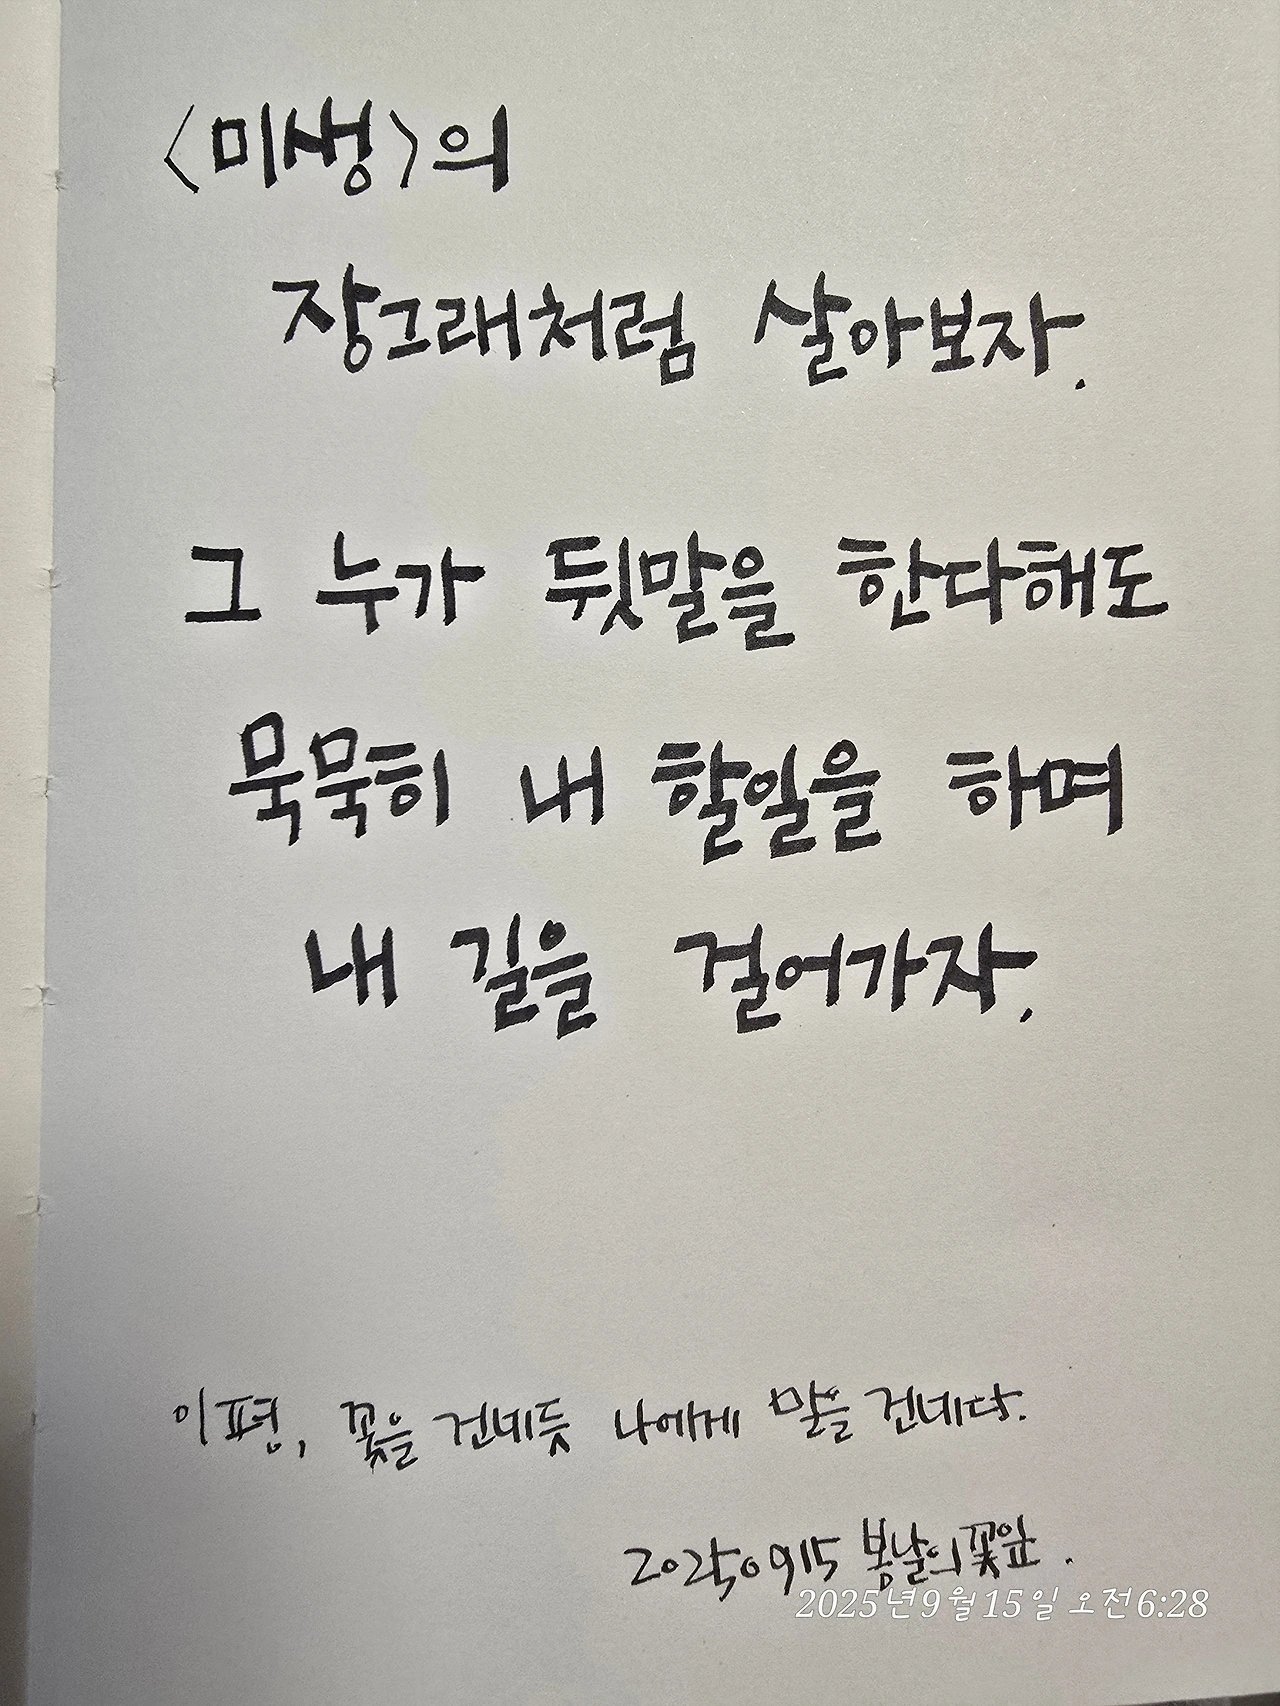 <미생>의
장그래처럼 살아보자.
그 누가 뒷말을 한다해도
묵묵히 내 할일을 하며
내 길을 걸어가자.
이평, 꽃을 건네듯 나에게 말을 건네다.
20250915 봄날의꽃잎.
2025년 9월 15일 오전 6:28